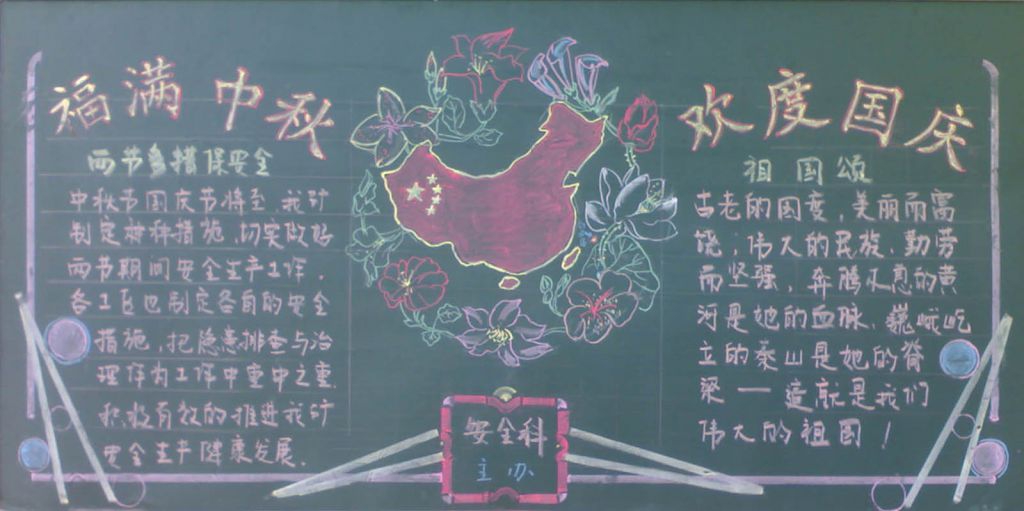 福满中秋
两节多措保安全
中秋节国庆节将至，我矿
制定被种措施，切实做好
两节期间安全生产工作。
各工区也制定各自的安全
措施，把隐患排查与治
理作为工作中重中之重，
积极有效的推进我矿
安全生产健康发展。
欢度国庆
祖国颂
古老的国度，美丽而富
饶；伟大的民族，勤劳
而坚强，奔腾不息的黄
河是她的血脉，巍峨屹
立的泰山是她的脊
梁——这就是我们
伟大的祖国！
安全科
主办